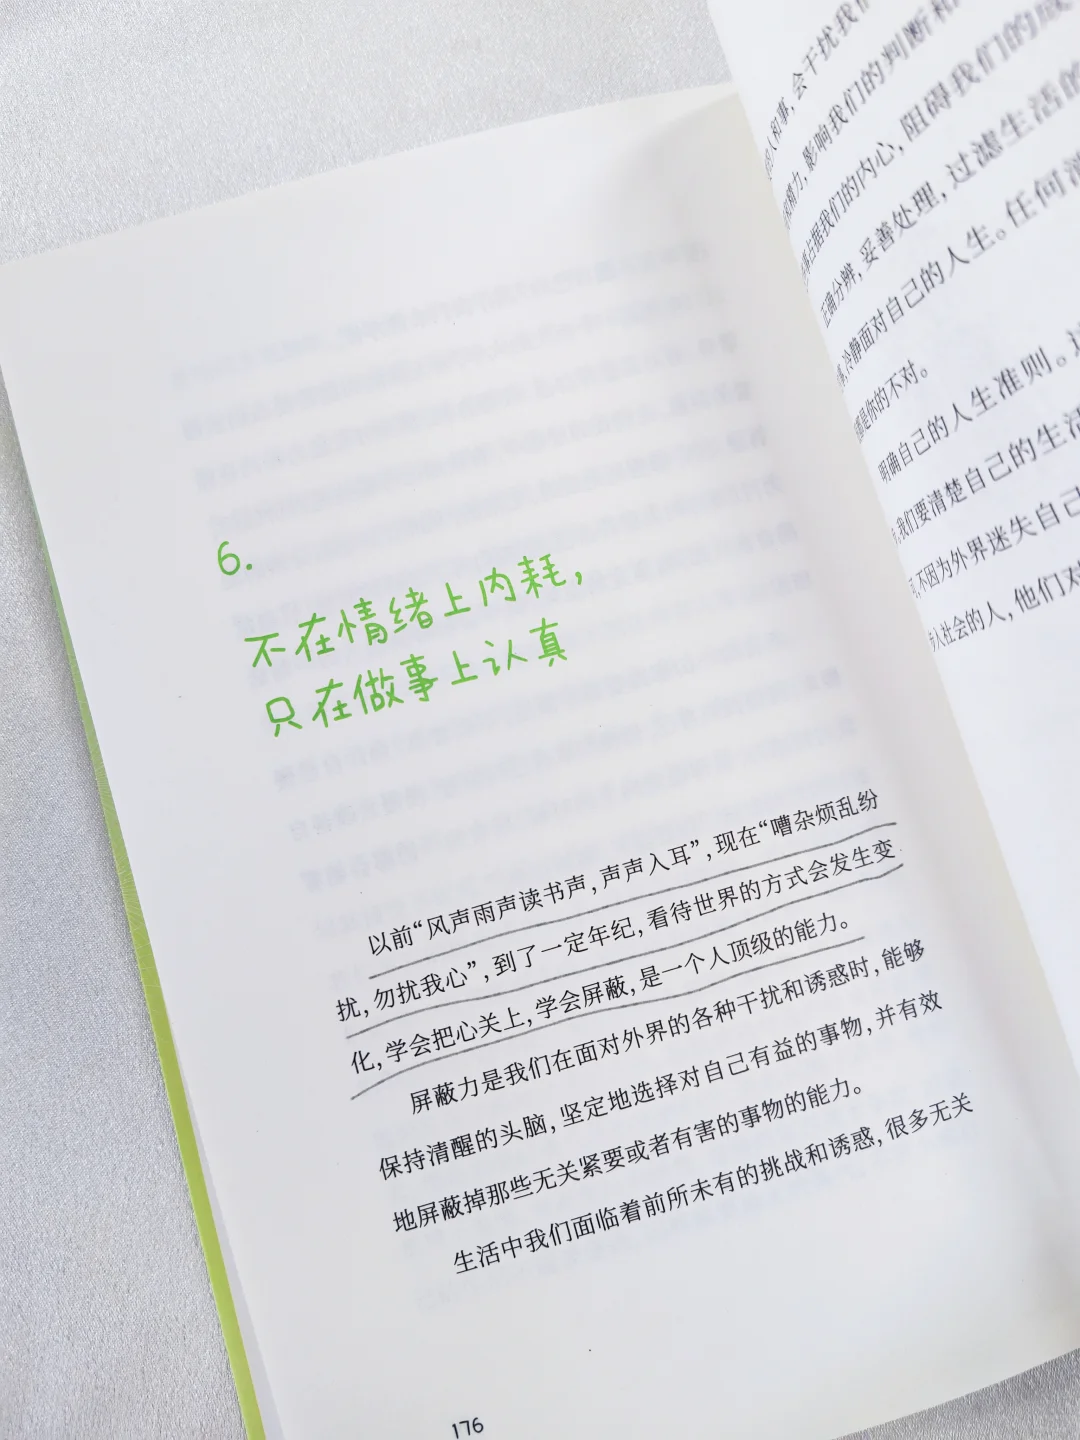 6.
不在情绪上内耗，
只在做事上认真
以前“风声雨声读书声，声声入耳”，现在“嘈杂烦乱纷
扰，勿扰我心”，到了一定年纪，看待世界的方式会发生变
化，学会把心关上，学会屏蔽，是一个人顶级的能力。
屏蔽力是我们在面对外界的各种干扰和诱惑时，能够
保持清醒的头脑，坚定地选择对自己有益的事物，并有效
地屏蔽掉那些无关紧要或者有害的事物的能力。
生活中我们面临着前所未有的挑战和诱惑，很多无关
176
人和事，会干扰我们
精力，影响我们的判断和
占据我们的内心，阻碍我们的成
正确分辨，妥善处理，过滤生活的
冷静面对自己的人生。任何消
都是你的不对。
明确自己的人生准则。
我们要清楚自己的生活
不因为外界迷失自己
人社会的人，他们对